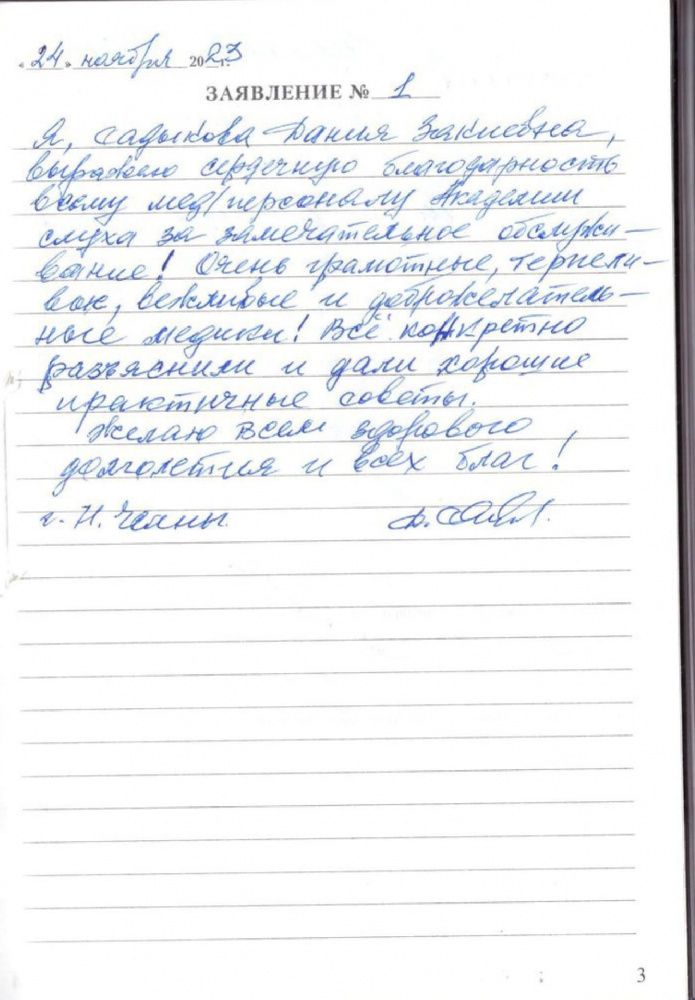 «24» ноября 2023 г.
ЗАЯВЛЕНИЕ № 1
Я, Садыкова Дания Закиевна,
выражаю сердечную благодарность
всему мед/персоналу Академии
слуха за замечательное обслужи-
вание! Очень грамотные, терпели-
вые, вежливые и доброжелатель-
ные медики! Всё конкретно
разъяснили и дали хорошие
практичные советы.
Желаю всем здорового
долголетия и всех благ!
г. Н. Челны. Д. Сад
3